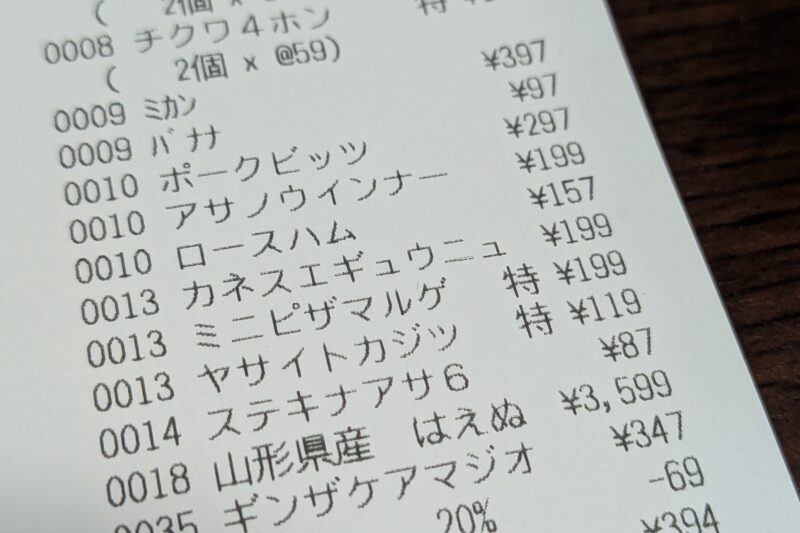 ( 2個 x
0008 チクワ4ホン 特
( 2個 x @59)
0009 ミカン ¥397
0009 バナナ ¥97
0010 ポークビッツ ¥297
0010 アサノウインナー ¥199
0010 ロースハム ¥157
0013 カネスエギュウニュ ¥199
0013 ミニピザマルゲ 特 ¥199
0013 ヤサイトカジツ 特 ¥119
0014 ステキナアサ6 ¥87
0018 山形県産 はえぬ ¥3,599
0035 ギンザケアマジオ ¥347
20% -69
¥394